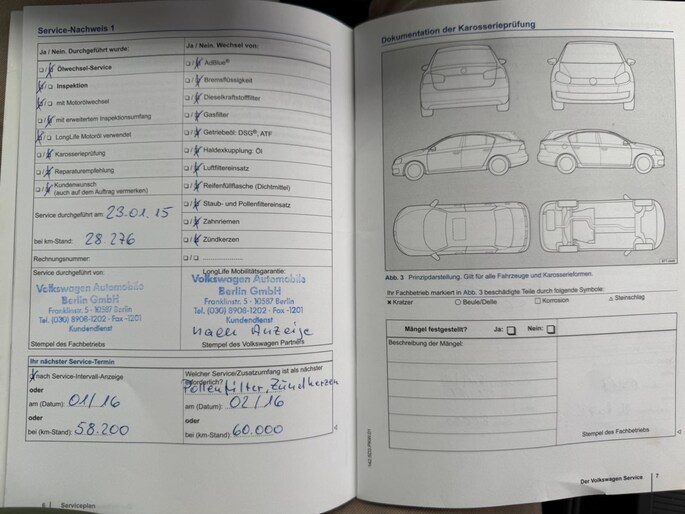 Service-Nachweis 1
Ja / Nein. Durchgeführt wurde:
Ja / Nein. Wechsel von:
Ölwechsel-Service
Inspektion
mit Motorölwechsel
mit erweitertem Inspektionsumfang
LongLife Motoröl verwendet
Karosserieprüfung
Reparaturempfehlung
Kundenwunsch
(auch auf dem Auftrag vermerken)
Service durchgeführt am: 23.01.15
bei km-Stand: 28.276
Rechnungsnummer:
AdBlue®
Bremsflüssigkeit
Dieselkraftstofffilter
Gasfilter
Getriebeöl: DSG®, ATF
Haldexkupplung: Öl
Luftfiltereinsatz
Reifenfüllflasche (Dichtmittel)
Staub- und Pollenfiltereinsatz
Zahnriemen
Zündkerzen
Service durchgeführt von:
Volkswagen Automobile
Berlin GmbH
Franklinstr. 5 - 10587 Berlin
Tel. (030) 8908-1202 - Fax -1201
Kundendienst
Stempel des Fachbetriebs
LongLife Mobilitätsgarantie:
Volkswagen Automobile
Berlin GmbH
Franklinstr. 5 - 10587 Berlin
Tel. (030) 8908-1202 - Fax -1201
Kundendienst
nach Anzeige
Stempel des Volkswagen Partners
Ihr nächster Service-Termin
nach Service-Intervall-Anzeige
oder
am (Datum): 01/16
oder
bei (km-Stand): 58.200
Welcher Service/Zusatzumfang ist als nächster
erforderlich?
Pollenfilter, Zündkerzen
am (Datum): 02/16
oder
bei (km-Stand): 60.000
6 Serviceplan
Dokumentation der Karosserieprüfung
Abb. 3 Prinzipdarstellung. Gilt für alle Fahrzeuge und Karosserieformen.
Ihr Fachbetrieb markiert in Abb. 3 beschädigte Teile durch folgende Symbole:
Kratzer Beule/Delle Korrosion Steinschlag
Mängel festgestellt? Ja: Nein:
Beschreibung der Mängel:
Stempel des Fachbetriebs
Der Volkswagen Service 7